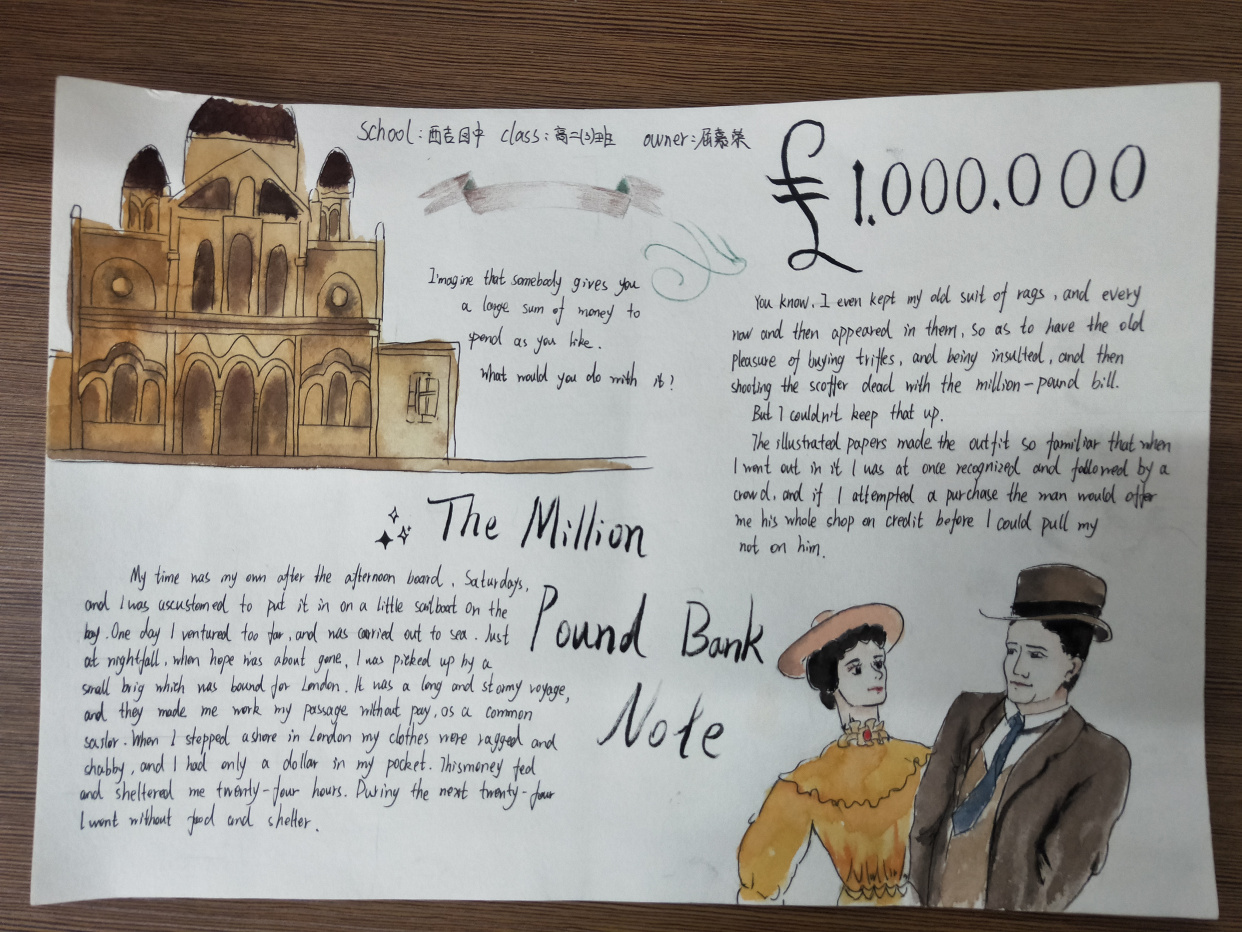 School: 西吉回中 class: 高二(3)班 owner: 屈嘉荣
£1.000.000
Imagine that somebody gives you
a large sum of money to
spend as you like.
what would you do with it?
You know, I even kept my old suit of rags, and every
now and then appeared in them, so as to have the old
pleasure of buying trifles, and being insulted, and then
shooting the scoffer dead with the million-pound bill.
But I couldn't keep that up.
The illustrated papers made the outfit so familiar that when
I went out in it I was at once recognized and followed by a
crowd, and if I attempted a purchase the man would offer
me his whole shop on credit before I could pull my
not on him.
The Million
Pound Bank
Note
My time was my own after the afternoon board, Saturdays,
and I was ascustomed to put it in on a little sailboat on the
bay. One day I ventured too far, and was carried out to sea. Just
at nightfall, when hope was about gone, I was picked up by a
small brig which was bound for London. It was a long and stormy voyage,
and they made me work my passage without pay, as a common
sailor. When I stepped ashore in London my clothes were ragged and
shabby, and I had only a dollar in my pocket. This money fed
and sheltered me twenty-four hours. During the next twenty-four
I went without food and shelter.